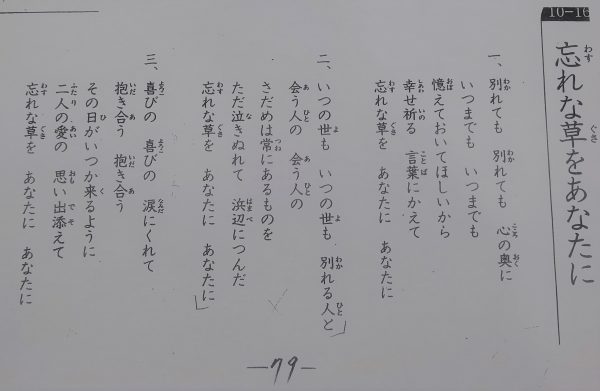 10-16
忘れな草をあなたに
一、別れても 別れても 心の奥に
いつまでも いつまでも
憶えておいてほしいから
幸せ祈る 言葉にかえて
忘れな草を あなたに あなたに
二、いつの世も いつの世も 別れる人と
会う人の 会う人の
さだめは常にあるものを
ただ泣きぬれて 浜辺につんだ
忘れな草を あなたに あなたに
三、喜びの 喜びの 涙にくれて
抱き合う 抱き合う
その日がいつか来るように
二人の愛の 思い出添えて
忘れな草を あなたに あなたに
—79—